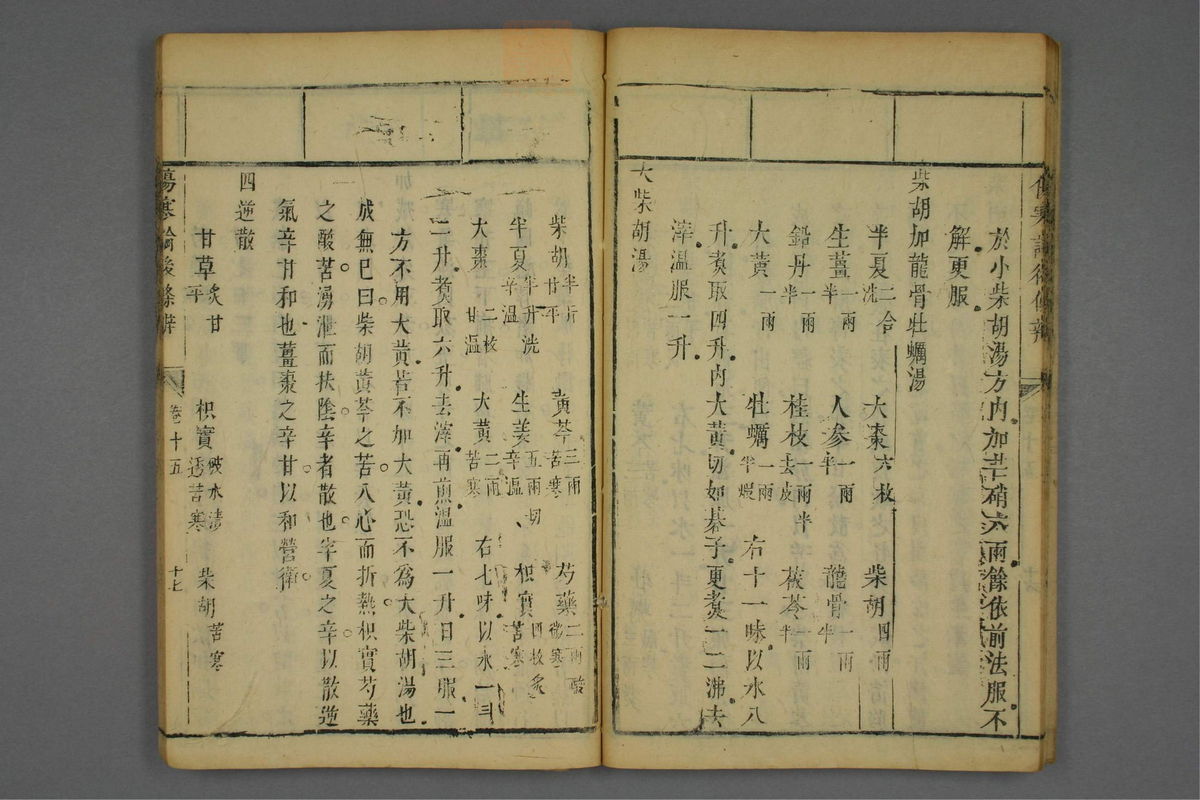 於小柴胡湯方内加芒硝六兩餘依前法服不
解更服
柴胡加龍骨牡蠣湯
半夏二合洗 大棗六枚 柴胡四兩
生薑一兩半 人參一兩半 龍骨一兩半
鉛丹一兩半 桂枝一兩半去皮 茯苓一兩半
大黃二兩 牡蠣一兩半煆 右十一味以水八
升煮取四升内大黃切如碁子更煮一二沸去
滓温服一升
大柴胡湯
柴胡半斤甘平 黃芩三兩苦寒 芍藥二兩酸微寒
半夏半升洗辛温 生姜五兩切辛温 枳實四枚炙苦寒
大棗十二枚甘温 大黃二兩苦寒 右七味以水一斗
二升煮取六升去滓再煎温服一升日三服一
方不用大黃昔不加大黃恐不為大柴胡湯也
成無已曰柴胡黃芩之苦入心而折熱枳實芍藥
之酸苦湧泄而扶陰辛者散也半夏之辛以散逆
氣辛甘和也薑棗之辛甘以和營衛
四逆散
甘草炙甘平 枳實破水漬透苦寒 柴胡苦寒
傷寒論後條辨 卷十五 十七